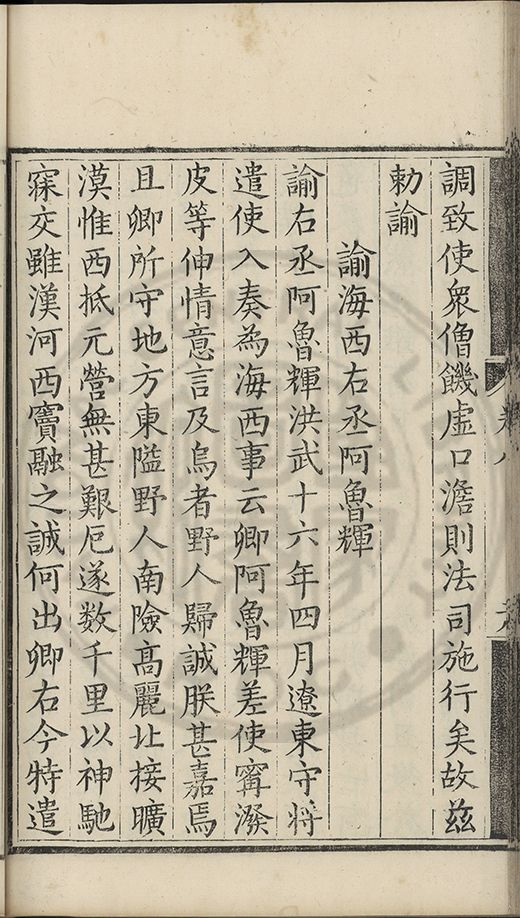 調致使衆僧饑虛口澹則法司施行矣故茲
勅諭
諭海西右丞阿魯輝
諭右丞阿魯輝洪武十六年四月遼東守將
遣使入奏為海西事云卿阿魯輝差使寗潑
皮等伸情意言及烏者野人歸誠朕甚嘉焉
且卿所守地方東隘野人南險髙麗北接曠
漠惟西抵元營無甚艱厄遂数千里以神馳
寐交雖漢河西竇融之誠何出卿右今特遣